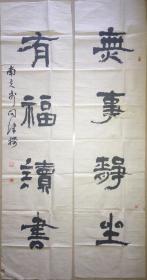 無事靜坐
有福讀書